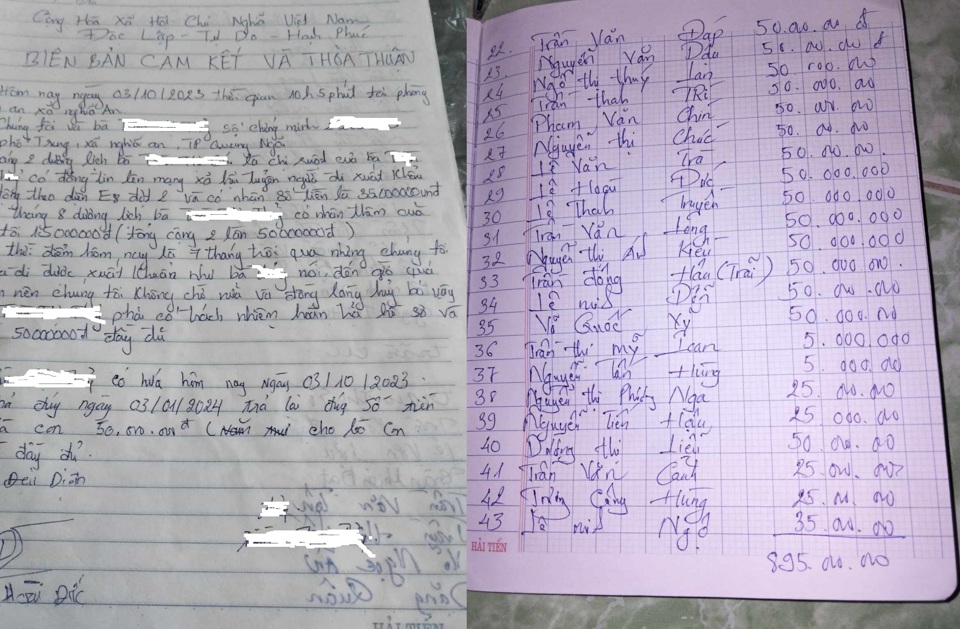 Cộng Hòa Xã Hội Chủ Nghĩa Việt Nam
Độc Lập - Tự Do - Hạnh Phúc
BIÊN BẢN CAM KẾT VÀ THỎA THUẬN
Hôm nay ngày 03/10/2023 thời gian 10h5phút tại phòng
an xã nghĩa An
Chúng tôi và bà số chứng minh
phổ Trung, xã nghĩa an, TP Quảng Ngãi
2 dương lịch bà là chị ruột của bà
có đăng tin lên mạng xã hội tuyển người đi xuất khẩu
động theo diện E8 đợt 2 và có nhận số tiền là 35000000vnd
tháng 8 dương lịch bà có nhận thêm của
tôi 15000000đ (tổng cộng 2 lần 50000000đ)
thời điểm hôm nay là 7 tháng trôi qua nhưng chúng tôi
đi được xuất khuẩn như bà nói đến giờ quá
nên chúng tôi không chờ nữa và đồng lòng hủy bỏ vậy
phải có trách nhiệm hoàn trả hồ sơ và
50000000đ đầy đủ
có hứa hôm nay ngày 03/10/2023.
đúng ngày 03/01/2024 trả lại đúng số tiền
con 50.00.00đ cho bố con
đầy đủ.
Đại Diện
Đức
HẢI TIẾN
22. Trần Văn Đáp 50.00.00 đ
23. Nguyễn Văn Dâu 50.00.00 đ
24 Ngô thị thuý Lan 50 000.00
25 Trần thanh Trí 50.000.00
26 Phạm Văn Chín 50.00.00
27 Nguyễn thị Chốc 50.00.00
28 Lê Văn Tra 50.00.00.
29 Lê Hoài Đức 50.000.000
30 Lê Thanh Truyền 50.000.000
31 Trần Văn Long 50.000.000
32 Nguyễn thị Ái Kiều 50.000.000
33 Trần đồng Hầu (Trãi) 50.000.00.
34 Lê Đến 50.00.00
35 Võ Quốc Vy 50.000.00
36 Trần thị mỹ Loan 5.000.000
37 Nguyễn Tấn Hùng 5.000.00
38 Nguyễn thị Phương Nga 25.00.00
39 Nguyễn Tiến Hậu 25 000.00
40 Dương thị Liễu 50.00.00
41 Trần Văn Cảnh 25.00.00
42 Trương Công Hùng 25.00.00
43 Ngộ 35.00.00
895.00.00
HẢI TIẾN